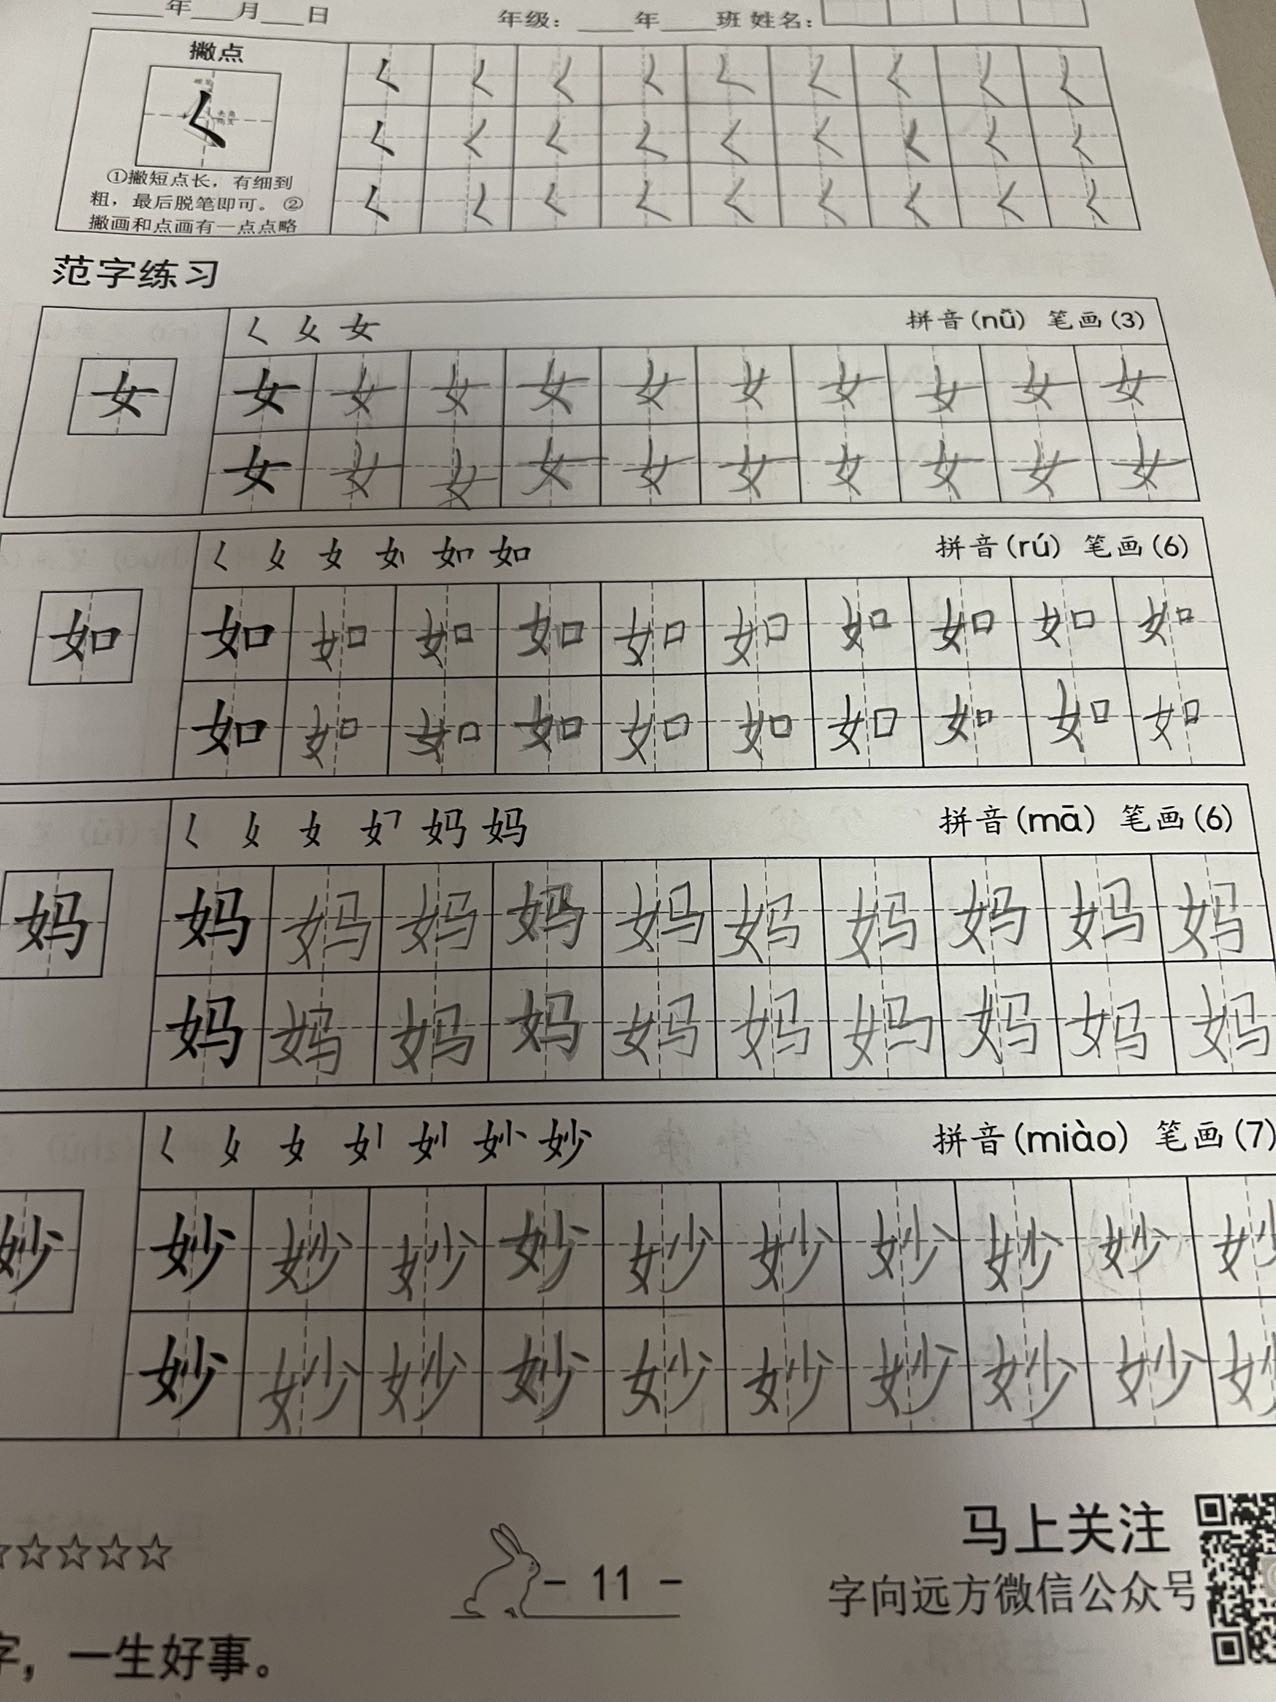 ____年___月___日 年级：____年____班 姓名：
撇点
く く く く く く く く く く
①撇短点长，有细到
粗，最后脱笔即可。②
撇画和点画有一点点略
く く く く く く く く く
く く く く く く く く く
范字练习
く 女 女 拼音(nǚ) 笔画(3)
女 女 女 女 女 女 女 女 女 女 女
女 女 女 女 女 女 女 女 女 女
拼音(rú) 笔画(6)
如 如 如 如 如 如 如 如 如 如 如
如 如 如 如 如 如 如 如 如 如
拼音(mā) 笔画(6)
妈 妈 妈 妈 妈 妈 妈 妈 妈 妈 妈
妈 妈 妈 妈 妈 妈 妈 妈 妈 妈
拼音(miào) 笔画(7)
妙 妙 妙 妙 妙 妙 妙 妙 妙 妙 妙
妙 妙 妙 妙 妙 妙 妙 妙 妙 妙
☆☆☆☆☆
- 11 -
马上关注
字向远方微信公众号
字，一生好事。